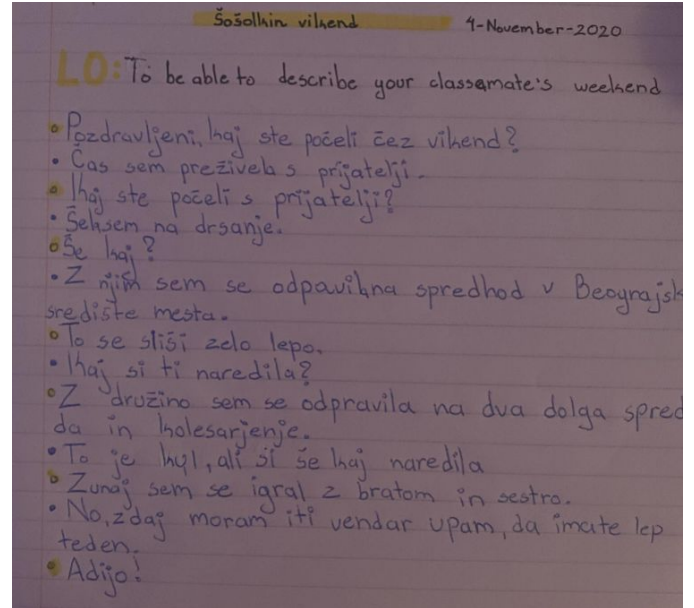 Šošolkin vikend 4-November-2020
LO: To be able to describe your classemate's weekend
• Pozdravljeni, kaj ste počeli čez vikend?
• Čas sem preživela s prijatelji.
• Kaj ste počeli s prijatelji?
• Šelsem na drsanje.
• Še kaj?
• Z njim sem se odpavilna spredhod v Beograjsk
središte mesta.
• To se sliši zelo lepo.
• Kaj si ti naredila?
• Z družino sem se odpravila na dva dolga spred
da in kolesarjenje.
• To je kul, ali si še kaj naredila
• Zunaj sem se igral z bratom in sestro.
• No, zdaj moram iti vendar upam, da imate lep
teden.
• Adijo!